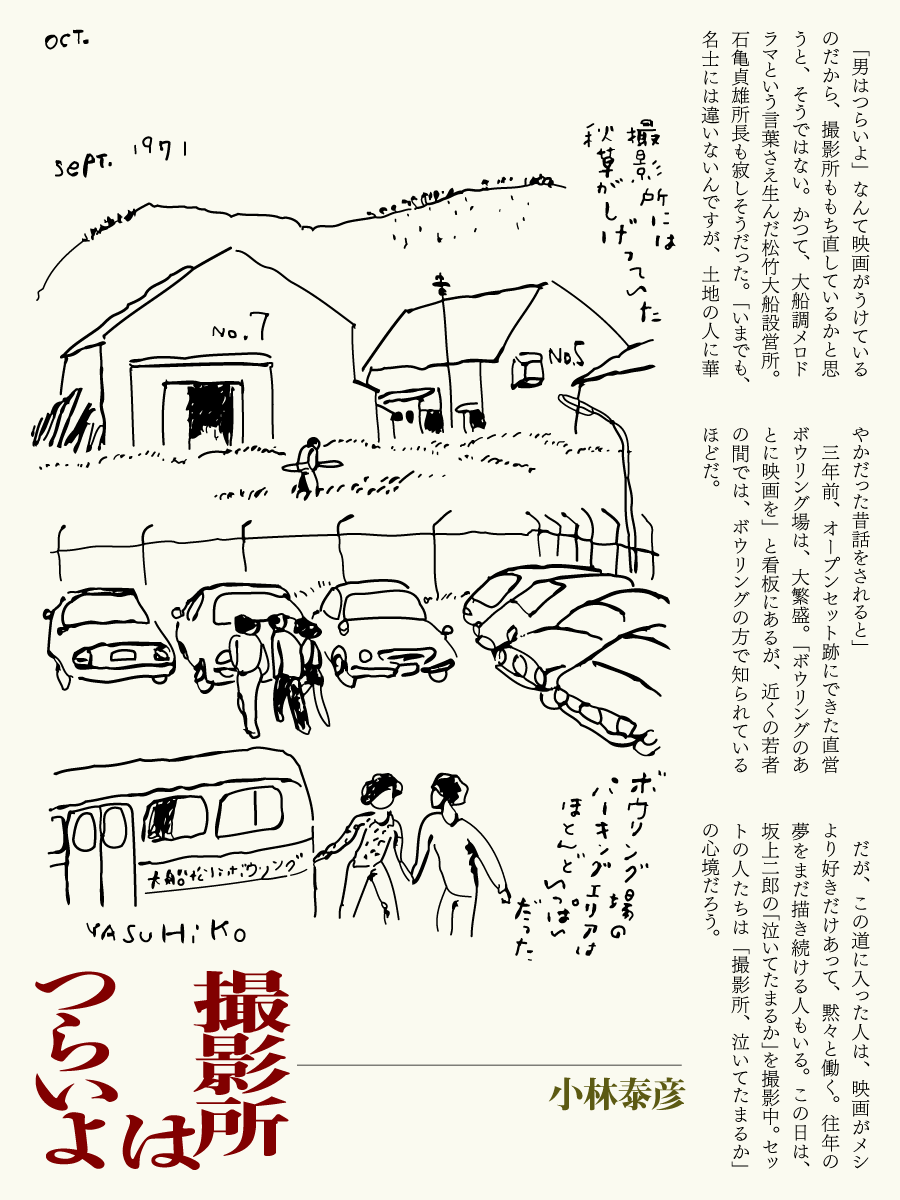 「男はつらいよ」なんて映画がうけている
のだから、撮影所ももち直しているかと思
うと、そうではない。かつて、大船調メロド
ラマという言葉さえ生んだ松竹大船設営所。
石亀貞雄所長も寂しそうだった。「いまでも、
名士には違いないんですが、土地の人に華
やかだった昔話をされると」
三年前、オープンセット跡にできた直営
ボウリング場は、大繁盛。「ボウリングのあ
とに映画を」と看板にあるが、近くの若者
の間では、ボウリングの方で知られている
ほどだ。
だが、この道に入った人は、映画がメシ
より好きだけあって、黙々と働く。往年の
夢をまだ描き続ける人もいる。この日は、
坂上二郎の「泣いてたまるか」を撮影中。セッ
トの人たちは「撮影所、泣いてたまるか」
の心境だろう。
OCT.
SEPT. 1971
撮影所には
秋草がしげっていた
No.7
No.5
ボウリング場の
パーキングエリアは
ほとんどいっぱい
だった。
大船松竹ボウリング
YASUHIKO
撮影所
は
つらいよ
小林泰彦